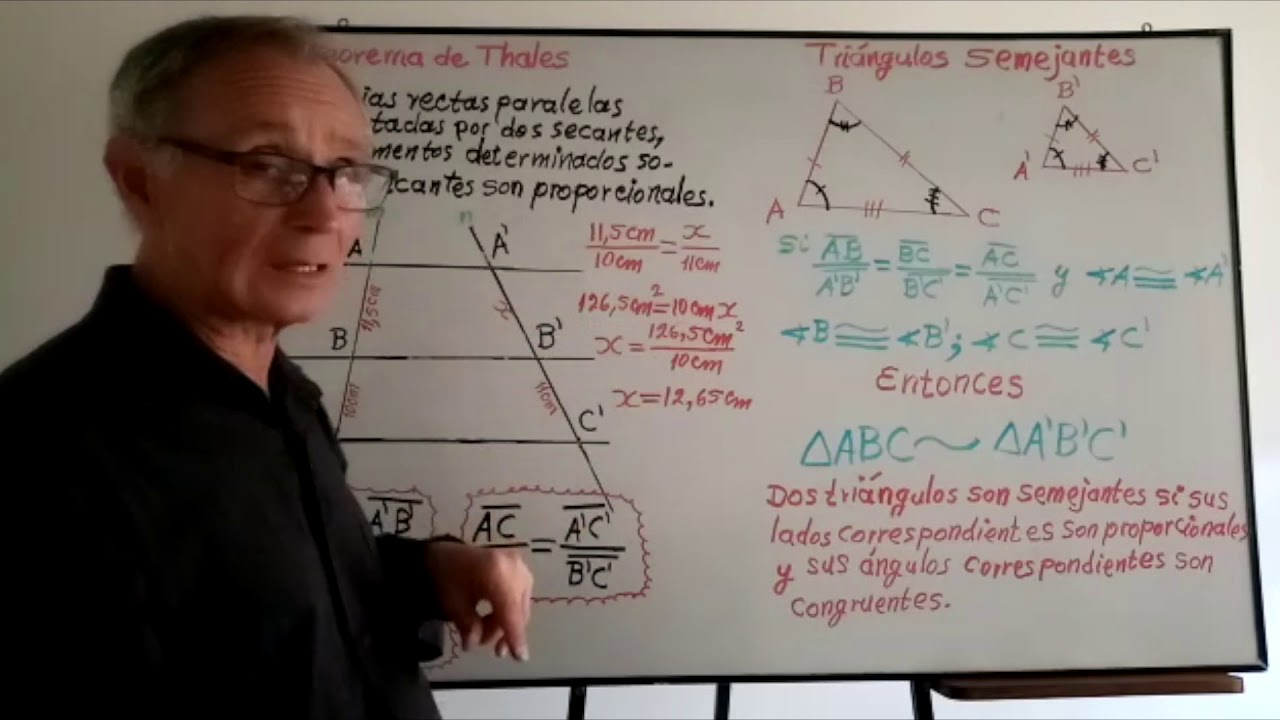 de Thales
rectas paralelas
por dos secantes,
determinados so-
son proporcionales.
A
A'
B
B'
C'
11,5cm
10cm
x
11cm
11,5cm/10cm = x/11cm
126,5cm²=10cm x
x = 126,5cm²/10cm
x=12,65cm
A'B'
AC/ = A'C'/B'C'
Triángulos Semejantes
B
A
C
B'
A'
C'
Si AB/A'B' = BC/B'C' = AC/A'C' y ∢A≅∢A'
∢B≅∢B'; ∢C≅∢C'
Entonces
△ABC ~ △A'B'C'
Dos triángulos son semejantes si sus
lados correspondientes son proporcionales
y sus ángulos correspondientes son
congruentes.